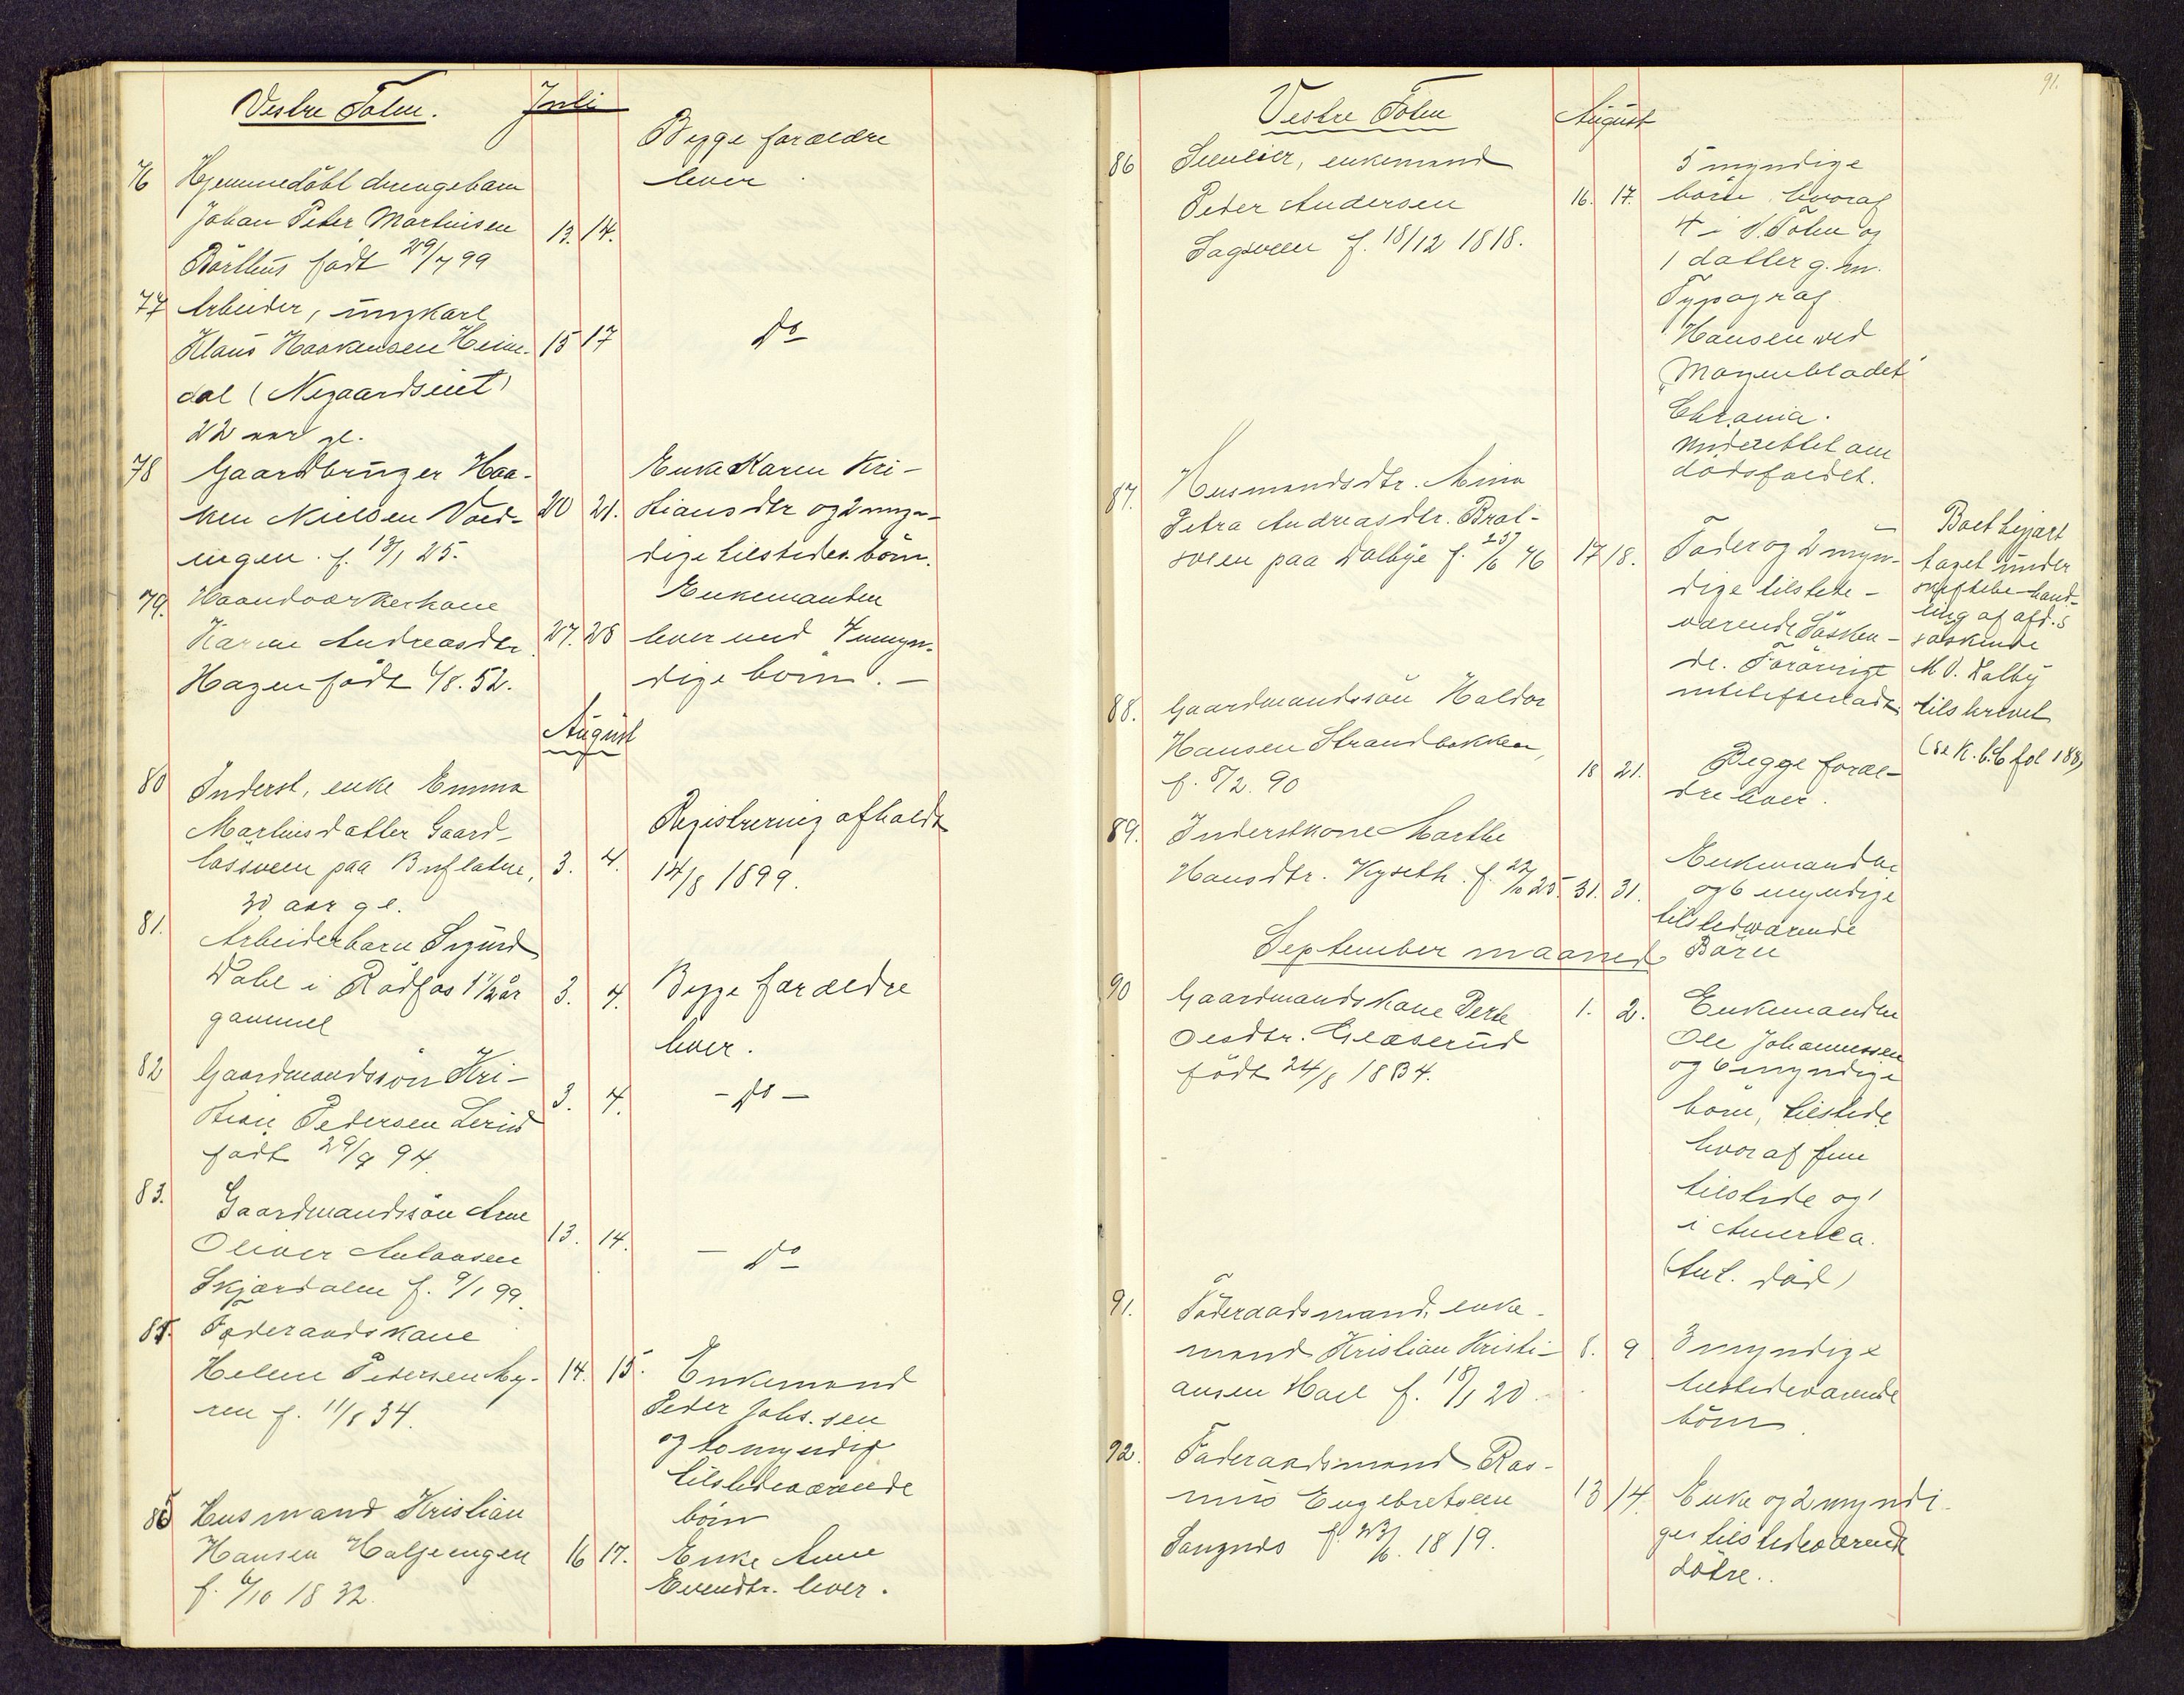 Vestre Toten. Juli
76 Hjemmedöbt drengebarn
Johan Peter Martinsen 13. 14.
født 29/7 99
Begge forældre
lever
77 Arbeider, ungkarl
Klaus Haakensen Heim- 15 17 Do
dal (Negaardseiet)
22 aar gl.
78 Gaardbruger Haa-
ken Nielsen Vold- 20 21.
engen. f. 13/1 25.
Enke Karen Kri-
stiansdtr og 2 myn-
dige tilstedev. börn.
79. Haandværkerkone
Karen Andreasdtr. 27. 28
Hagen födt 4/8. 52.
Enkemanden
lever med 4 umyn-
dige börn. -
August
80 Inderst, enke Emma
Martinsdatter Gaard-
løsveen paa 3. 4.
30 aar gl.
Registrering afholdt
14/8 1899.
81. Arbeiderbarn Sigurd
Dahl i Rødfos 1 1/2 år 3. 4.
gammel
Begge forældre
lever.
82 Gaardmandssön Kri-
stian Pedersen 3. 4. - Do -
født 29/9 94.
83. Gaardmandssön Arne
Oliver Antonsen 13. 14. - Do
Skjærdalen f. 9/1 99.
84. Føderaadskone
Helene Pedersen My- 14. 15.
ren f. 11/8 34.
Enkemand
Peder Johs.sen
og to myndige
tilstedeværende
börn
85 Husmand Kristian
Hansen Haljeengen 16 17.
f. 6/10 1832.
Enke Anne
Evendtr. lever.
91.
Vestre Toten August
86 enkemand
Peder Andersen 16. 17.
Sagveen f. 18/12 1818.
5 myndige
börn, hvoraf
4 i V. Toten og
1 datter g. m.
Typograf
Hansen ved
"Morgenbladet"
Chrania.
underettet om
dödsfaldet.
87. Husmandsdtr. Mina
Petra Andreasdtr. Brat-
sveen paa Dalbye f. 25/6 76 17 18.
Fader og 2 myn-
dige tilstede-
værende Søsken-
de. Forøvrigt
intet efterladt.
Boet ligjært
taget under
skiftebehand-
ling af afd.s
søskende
M. O. Dalby
tilskrevet
(se K. b. 6 fol 188)
88. Gaardmandssön Haldor
Hansen Strandbakken,
f. 8/2. 90 18 21.
Begge foræl-
dre lever.
89. Inderstkone Marthe
Hansdtr. Kyseth. f. 22/10 25. 31. 31.
Enkemanden
og 6 myndige
tilstedeværende
Börn
September maaned.
90 Gaardmandskone Berte 1. 2.
Olesdtr. Glæserud
født 24/8 1834.
Enkemanden
Ole Johannessen
og 6 myndige
börn, tilstede
hvoraf fem
tilstede og 1
i Amerika.
(Ant. död)
91. Föderaadsmand, enke-
mand Kristian Kristi- 8. 9
ansen Hoel f. 18/1 20.
3 myndige
tilstedeværende
börn
92. Føderaadsmand Ras-
mus Engebretsen 13 14.
f. 23/6. 1819.
Enke og 2 myndi-
ge tilstedeværende
døtre.